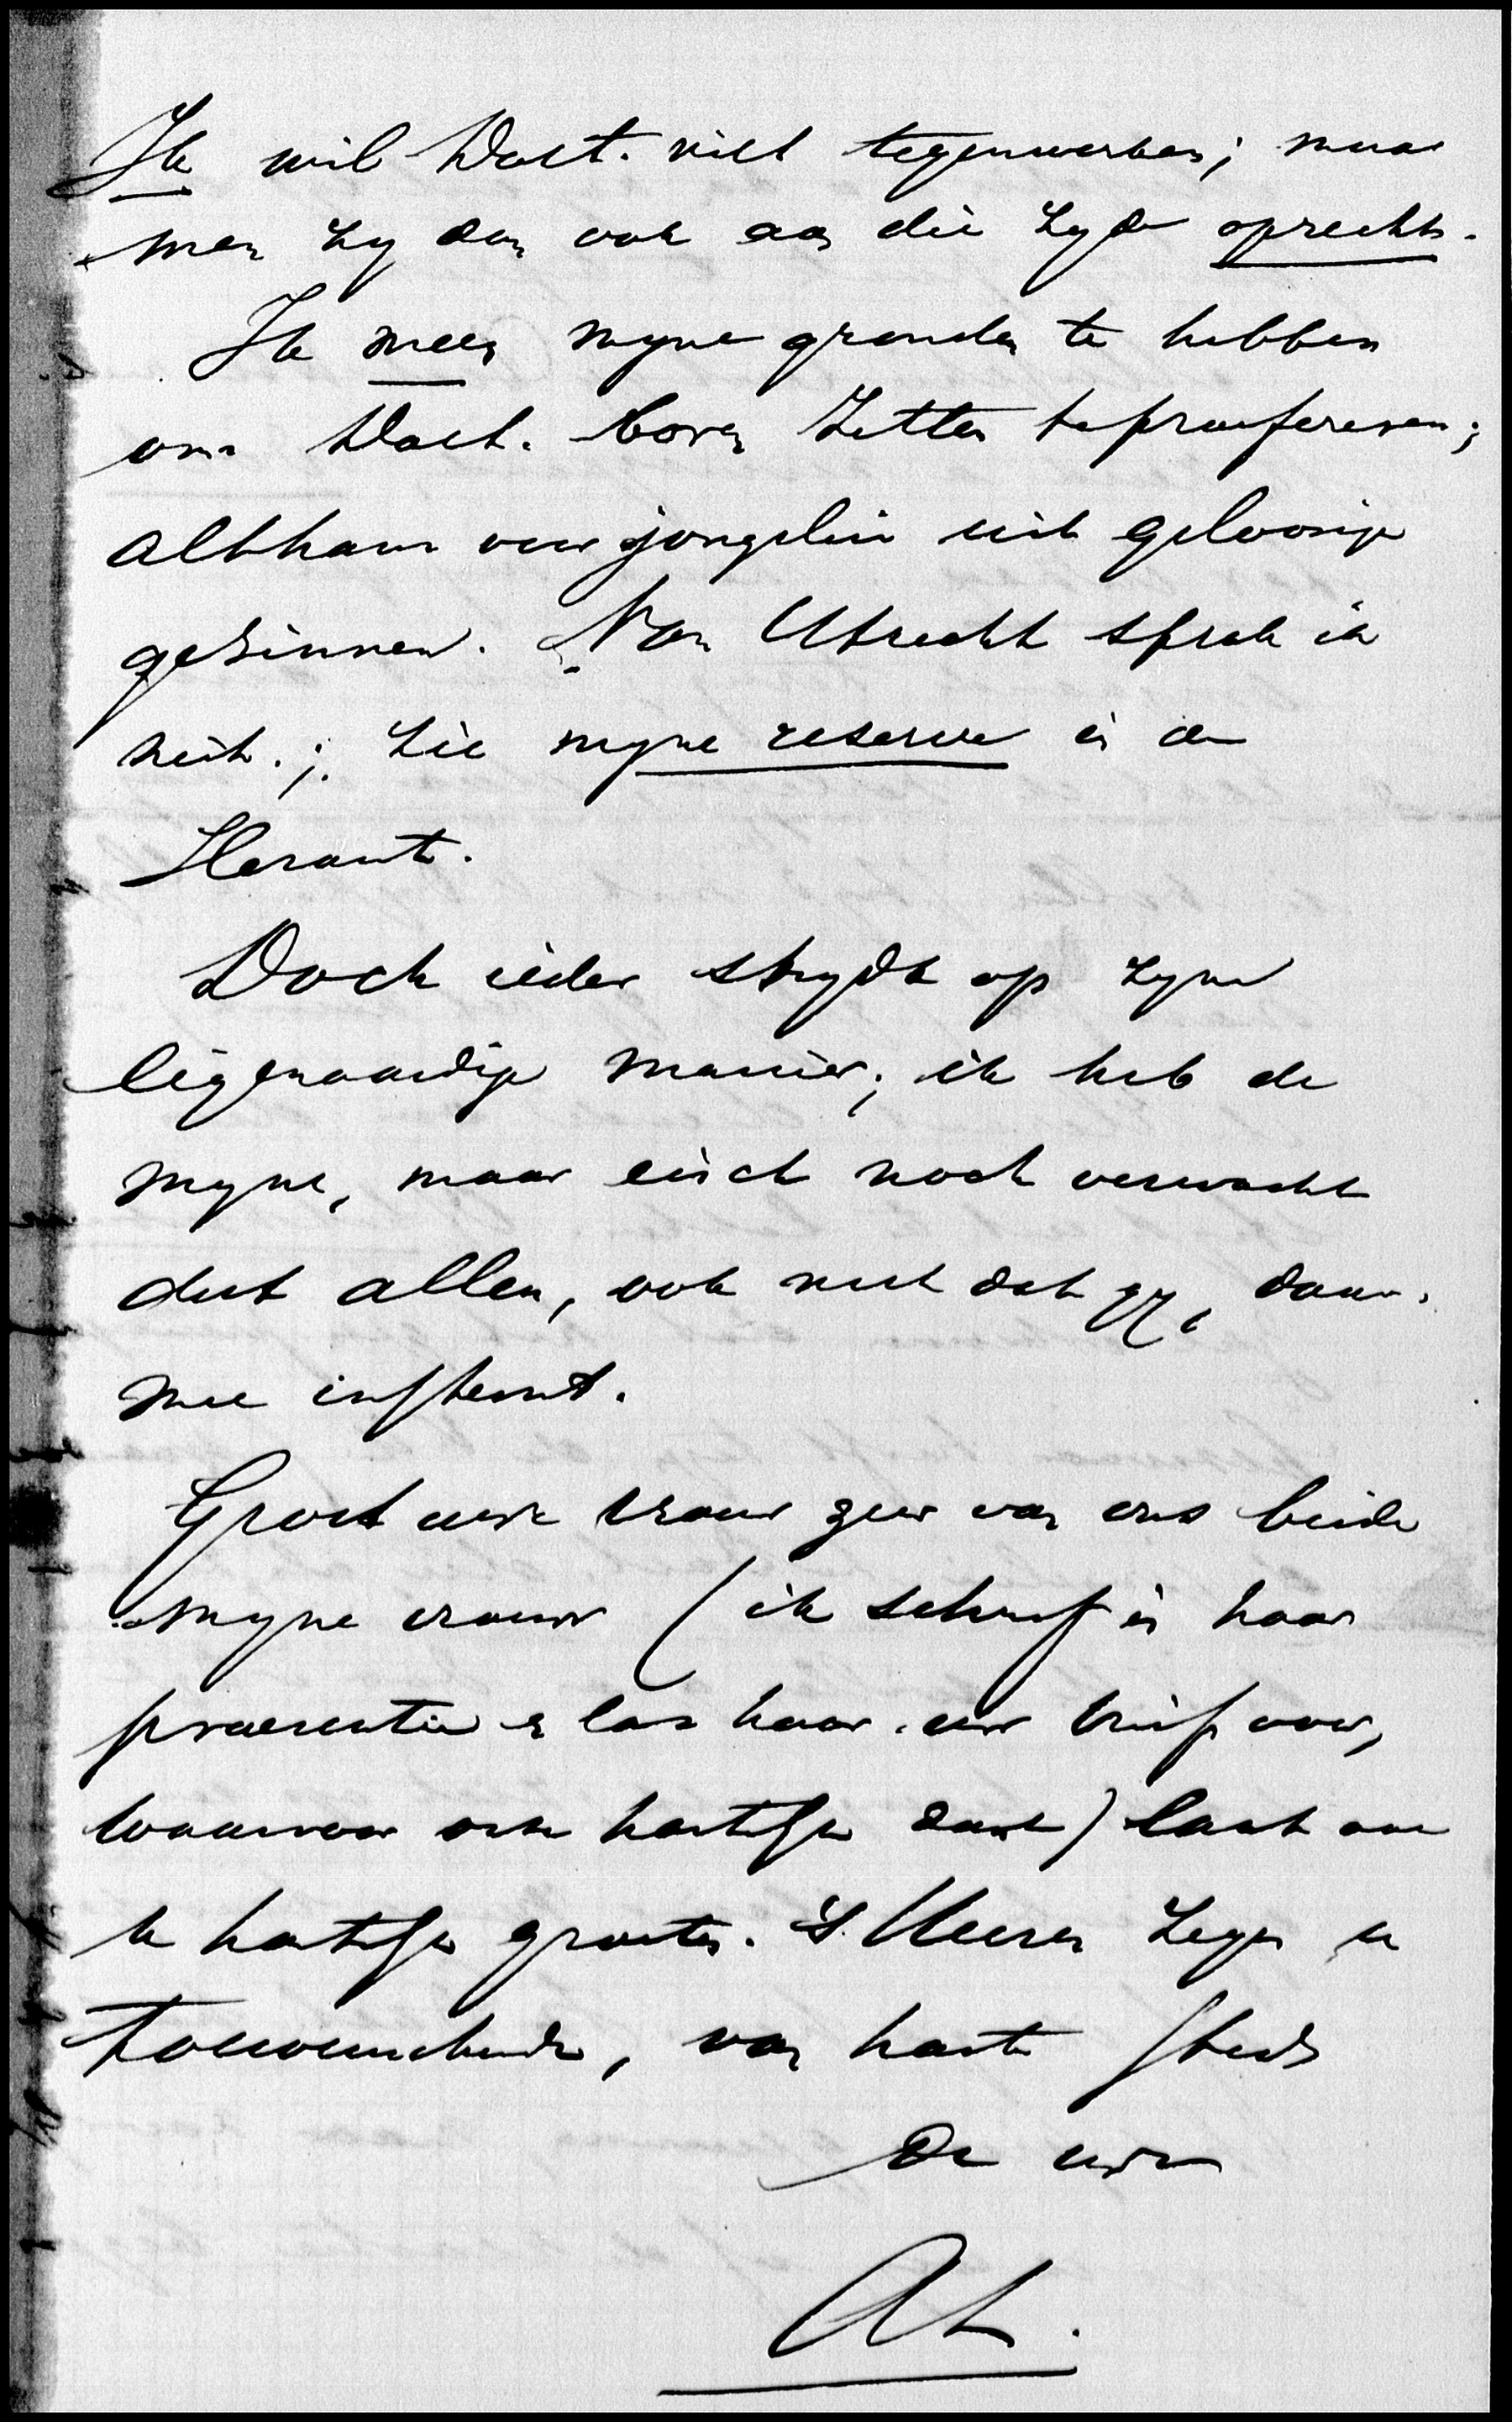 Ik wil Doet. niet tegenwerken; maar
men zy dan ook aan die zyde oprecht.
Ik meen myne gronden te hebben
om Doet. boven Zetten te praefereren;
althans voor jongelui uit geloovige
gezinnen. Van Utrecht sprak ik
niet.; zie myne reserve in de
Heraut.
Doch ieder strydt op zyne
eigenaardige manier; ik heb de
myne, maar eisch noch verwacht
dat allen, ook niet dat gy, daar-
mee instemt.
Groet uwe vrouw zeer van ons beide
myne vrouw (ik schreef in haar
praesentie & las haar uw brief voor,
waarvoor ook hartelyk dank) laat u
te hartelyk groeten. 's Heeren zegen u
toewenschende, van harte steeds
de uwe